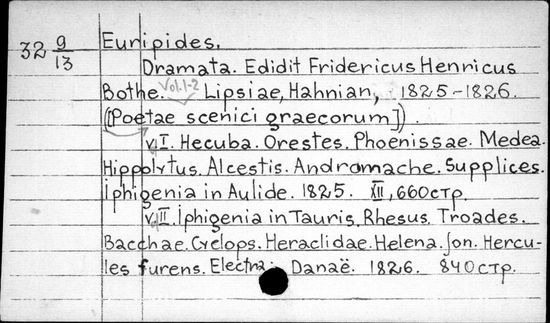 32 9/13 Euripides.
Dramata. Edidit Fridericus Henricus
Bothe. Vol. 1-2 Lipsiae, Hahnian, 1825-1826.
([Poetae scenici graecorum]).
v. I. Hecuba. Orestes. Phoenissae. Medea.
Hippolytus. Alcestis. Andromache. Supplices.
Iphigenia in Aulide. 1825. XII, 660 стр.
v. II. Iphigenia in Tauris. Rhesus. Troades.
Bacchae. Cyclops. Heraclidae. Helena. Jon. Hercu-
les furens. Electra. Danaë. 1826. 840 стр.